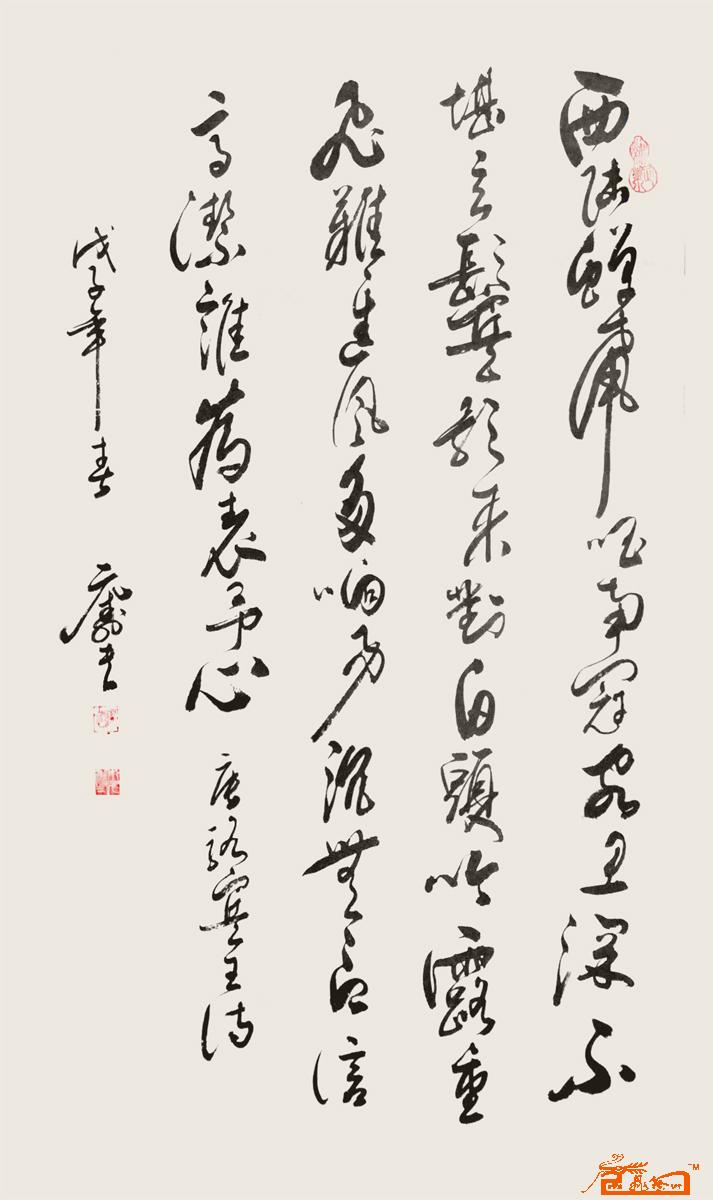 西陸蟬聲唱南冠客思深不
堪玄鬢影来對白頭吟露重
飛難進風多响易沉無人信
高潔誰為表予心 唐駱賓王詩
戊子年春